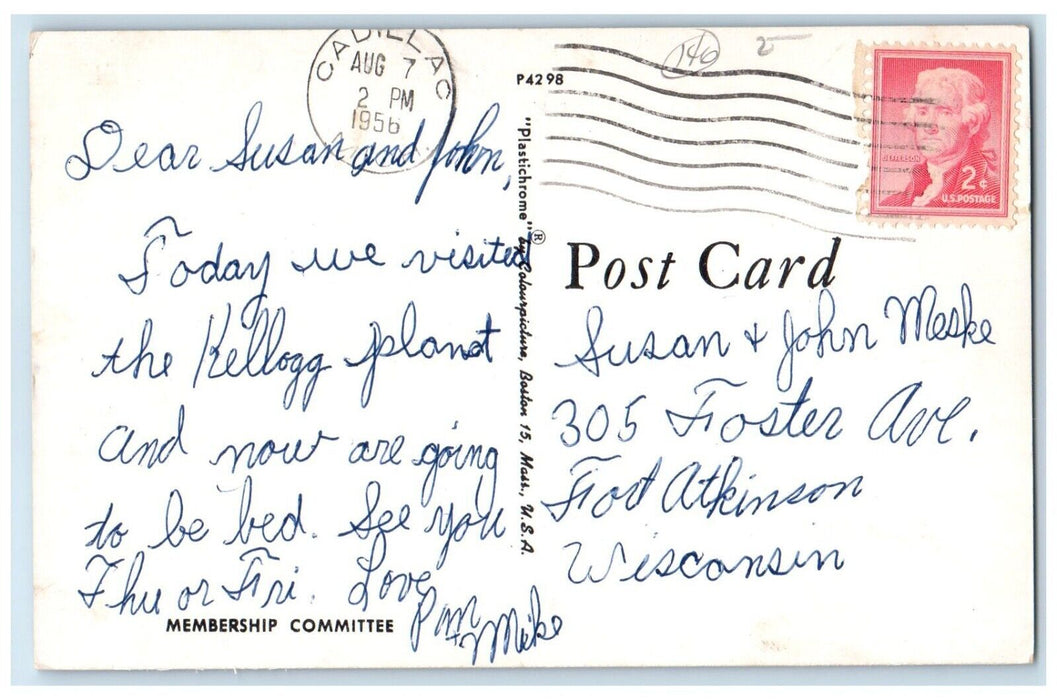 CADILLAC
AUG 7
2 PM
1956
140
2
P4298
DEFFERSON
2¢
U.S. POSTAGE
Dear Susan and John,
Today we visited
the Kellogg planat
and now are going
to be bed. See you
Thu or Fri. Love
Pam
+ Mike
MEMBERSHIP COMMITTEE
"Plastichrome"® by Colourpicture, Boston 15, Mass., U.S.A.
Post Card
Susan + John Meske
305 Foster Ave.
Fort Atkinson
Wisconsin